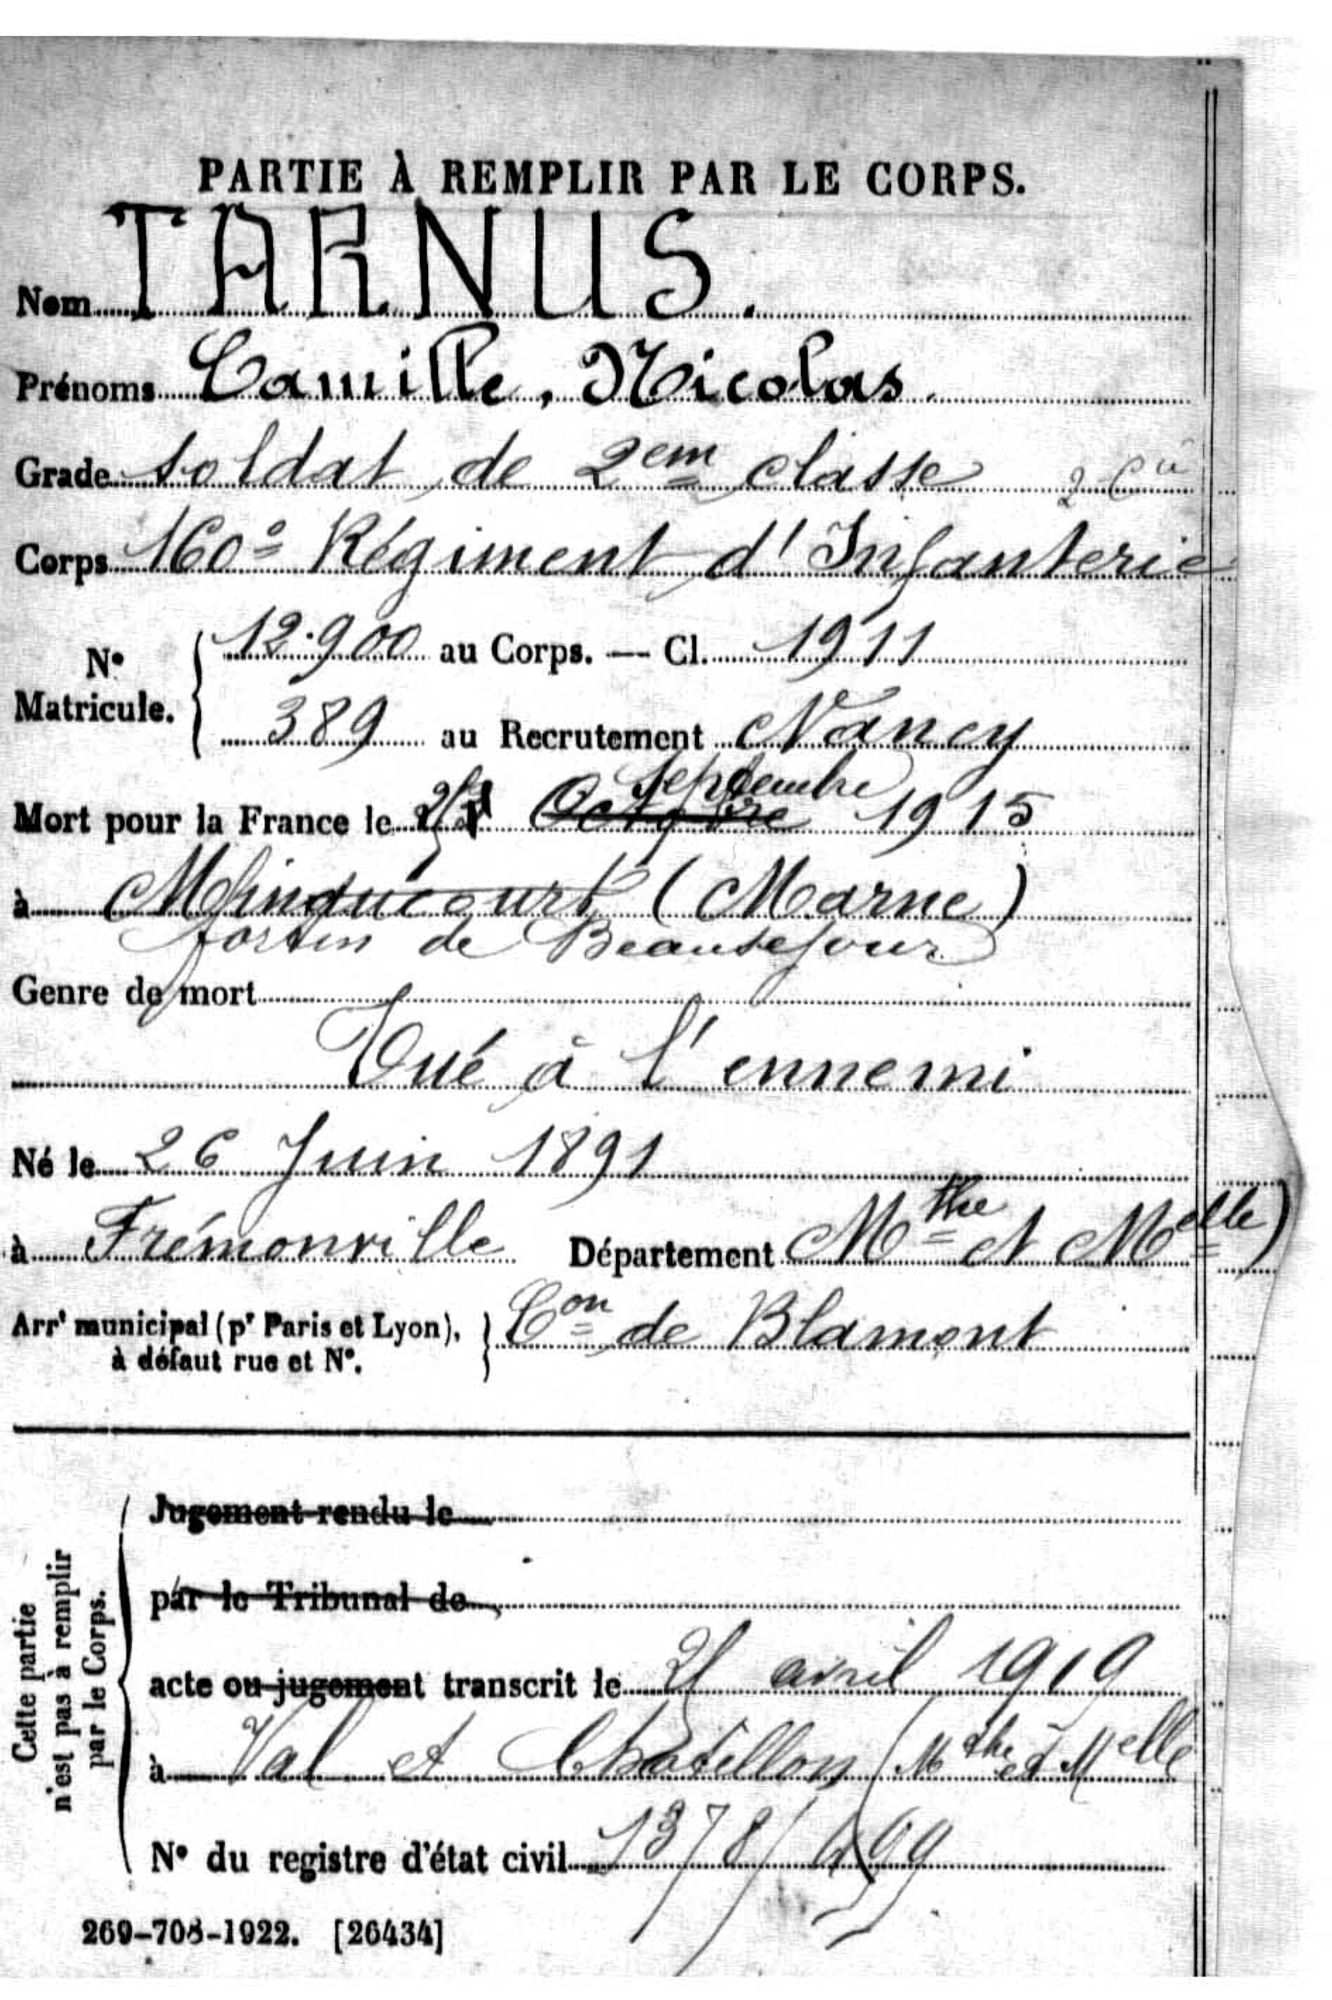 PARTIE À REMPLIR PAR LE CORPS.
Nom TARNUS.
Prénoms Camille, Nicolas.
Grade soldat de 2em classe
Corps 160e Régiment d'Infanterie
N° Matricule. 12.900 au Corps. — Cl. 1911
389 au Recrutement Nancy
Septembre
Mort pour la France le Octobre 1915
à Minaucourt (Marne)
fortin de Beauséjour
Genre de mort
Tué à l'ennemi
Né le 26 Juin 1891
à Frémonville Département Mthe et Melle)
Arrt municipal (pr Paris et Lyon), à défaut rue et N°. Con de Blamont
Cette partie n'est pas à remplir par le Corps.
Jugement rendu le
par le Tribunal de
acte ou jugement transcrit le avril 1919
à Val et Chatillon (Mthe et Melle
N° du registre d'état civil 1378/
269-708-1922. [26434]